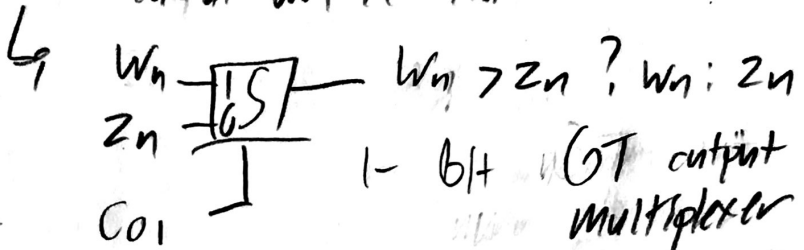 Wn 1 S Wn > Zn ? Wn : Zn
Zn 0
1-bit GT output
Co1 multiplexer